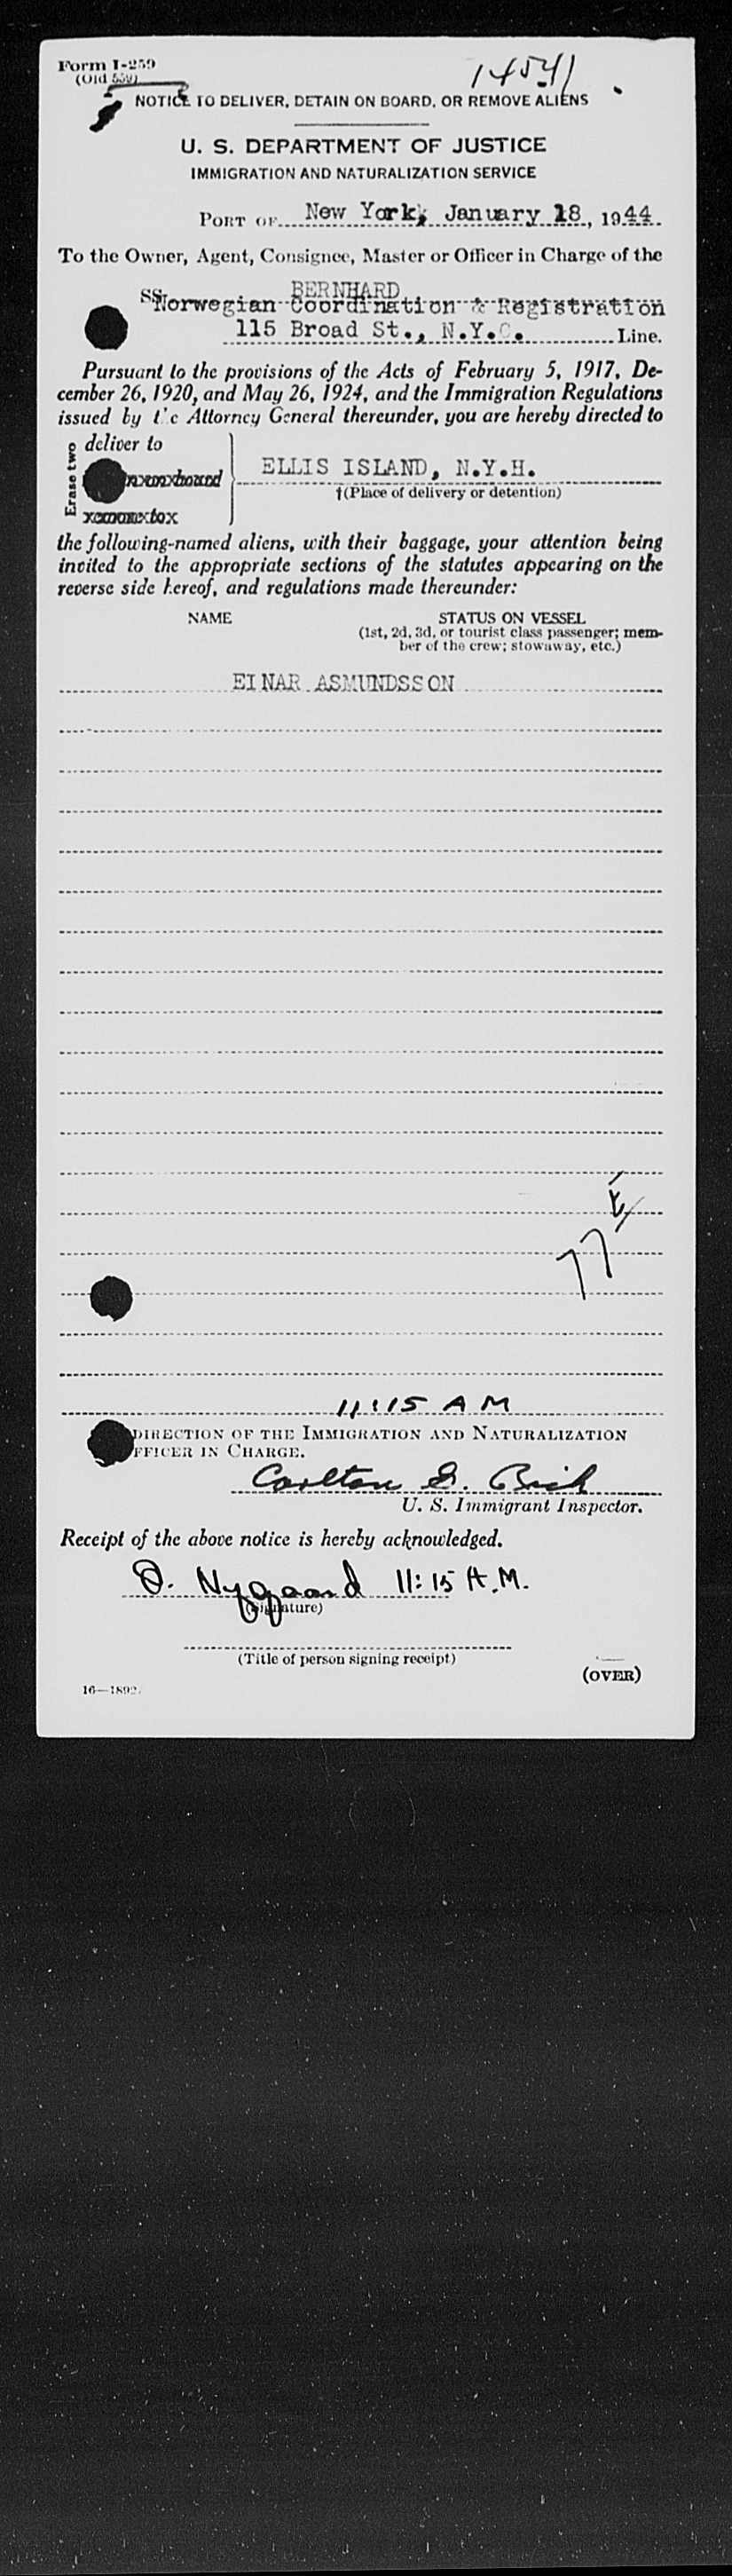 Form I-259
(Old 559)
14541
NOTICE TO DELIVER, DETAIN ON BOARD, OR REMOVE ALIENS
U. S. DEPARTMENT OF JUSTICE
IMMIGRATION AND NATURALIZATION SERVICE
PORT OF New York, January 18, 1944
To the Owner, Agent, Consignee, Master or Officer in Charge of the
SS BERNHARD
Norwegian Coordination & Registration
115 Broad St., N.Y.C. Line.
Pursuant to the provisions of the Acts of February 5, 1917, De-
cember 26, 1920, and May 26, 1924, and the Immigration Regulations
issued by the Attorney General thereunder, you are hereby directed to
Erase two
deliver to
ELLIS ISLAND, N.Y.H.
†(Place of delivery or detention)
the following-named aliens, with their baggage, your attention being
invited to the appropriate sections of the statutes appearing on the
reverse side hereof, and regulations made thereunder:
NAME STATUS ON VESSEL
(1st, 2d, 3d, or tourist class passenger; mem-
ber of the crew; stowaway, etc.)
EINAR ASMUNDSSON
77
11:15 AM
DIRECTION OF THE IMMIGRATION AND NATURALIZATION
FFICER IN CHARGE.
Carlton
U. S. Immigrant Inspector.
Receipt of the above notice is hereby acknowledged.
O. Nygaard 11:15 A.M.
(Signature)
(Title of person signing receipt)
(OVER)